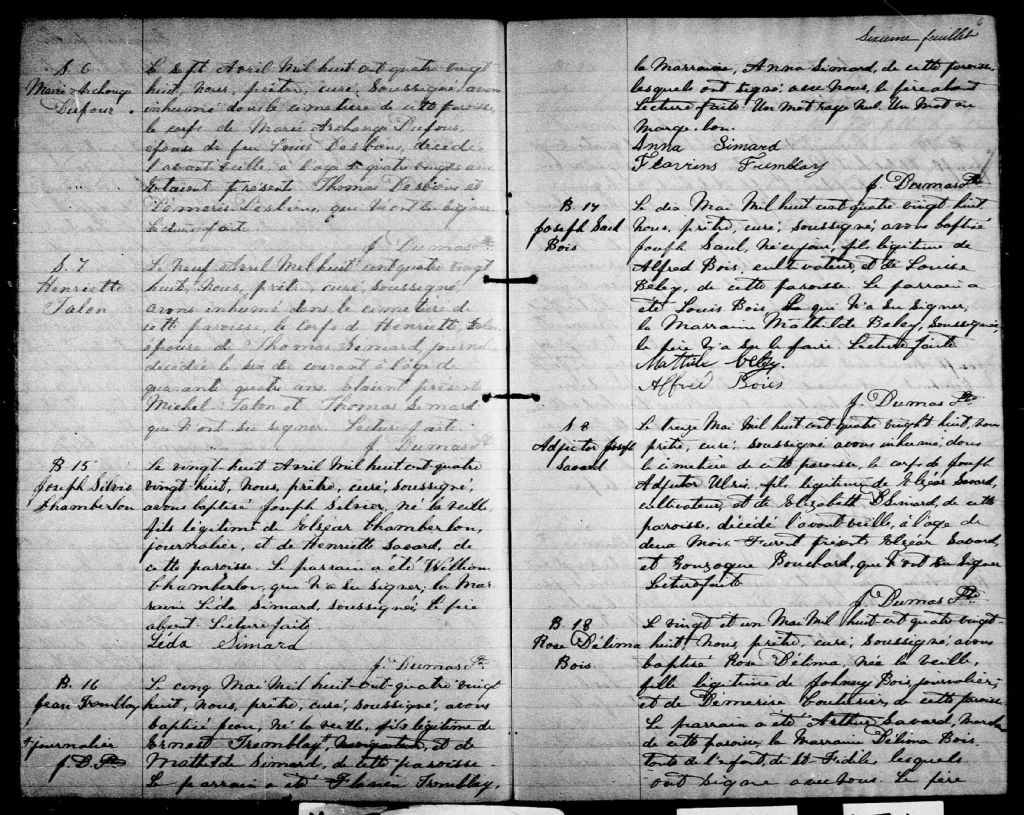 S. 6
Marie Archange
Dufour.
Le Sept Avril Mil huit cent quatre vingt
huit, Nous, prêtre, curé, soussigné, avons
inhumé dans le cimetière de cette paroisse,
le corps de Marie Archange Dufour,
épouse de feu Louis Desbiens, décédée
l'avant veille, à l'âge de quatre vingts ans
Etaient présents Thomas Desbiens et
Démeris Desbiens, qui n'ont su signer
Lecture faite.
J. Dumas Ptre
S. 7
Henriette
Talon
Le Neuf Avril Mil huit cent quatre vingt
huit, Nous, prêtre, curé, soussigné,
avons inhumé dans le cimetière de
cette paroisse, le corps de Henriette Talon
épouse de Thomas Simard, journ.
décédée le six du courant à l'âge de
quarante quatre ans. Etaient présents
Michel Talon et Thomas Simard
qui n'ont su signer. Lecture faite.
J. Dumas Ptre
B. 15
Joseph Silvio
Chamberlon
Le vingt huit Avril Mil huit cent quatre
vingt huit, Nous, prêtre, curé, soussigné,
avons baptisé Joseph Silvior, né la veille,
fils légitime de Elzéar Chamberlon,
journalier, et de Henriette Savard, de
cette paroisse. Le parrain a été William
Chamberlon, qui n'a su signer, la Mar-
raine Léda Simard, soussignée, le père
absent. Lecture faite
Léda Simard
J. Dumas Ptre
B. 16
Jean Tremblay
+ journalier
J. D. Ptre
Le cinq Mai Mil huit-cent-quatre vingt
huit, Nous, prêtre, curé, soussigné, avons
baptisé Jean, né la veille, fils légitime de
Ernest Tremblay+, navigateur, et de
Mathilde Simard, de cette paroisse.
Le parrain a été Flavien Tremblay,
6
Sixième feuillet
la Marraine, Anna Simard, de cette paroisse
lesquels ont signé avec nous, le père absent
Lecture faite. Un mot rayé nul. Un mot en
marge bon.
Anna Simard
Flaviens Tremblay
J. Dumas Ptre
B. 17
Joseph Saul
Bois
Le dix Mai Mil huit cent quatre vingt huit
Nous, prêtre, curé, soussigné, avons baptisé
Joseph Saul, né ce jour, fils légitime de
Alfred Bois, cultivateur, et de Louise
Beley, de cette paroisse. Le parrain a
été Louis Bois, qui n'a su signer,
la Marraine Mathilde Beley, soussignée,
le père n'a su le faire. Lecture faite
Mathilde Beley.
Alfred Bois
J. Dumas Ptre
S 8
Adjutor Joseph
Savard
Le treize Mai Mil huit cent quatre vingt huit, nous
prêtre, curé, soussigné avons inhumé, dans
le cimetière de cette paroisse, le corps de Joseph
Adjutor Ulric, fils légitime de Elzéar Savard,
cultivateur, et de Elizabeth Simard, de cette
paroisse, décédé l'avant veille, à l'âge de
deux mois. Furent présents Elzéar Savard,
et Gonzague Bouchard, qui n'ont su signer
Lecture faite
J. Dumas Ptre
B. 18
Rose Délima
Bois.
Le vingt et un Mai Mil huit cent quatre vingt-
huit, Nous, prêtre, curé, soussigné, avons
baptisé Rose Délima, née la veille,
fille légitime de Johnny Bois, journalier,
et de Démerise Couturier, de cette paroisse
Le parrain a été Arthur Savard,
de cette paroisse, la Marraine Délima Bois
tante de l'enfant, de St Fidèle, lesquels
ont signé avec nous. Le père